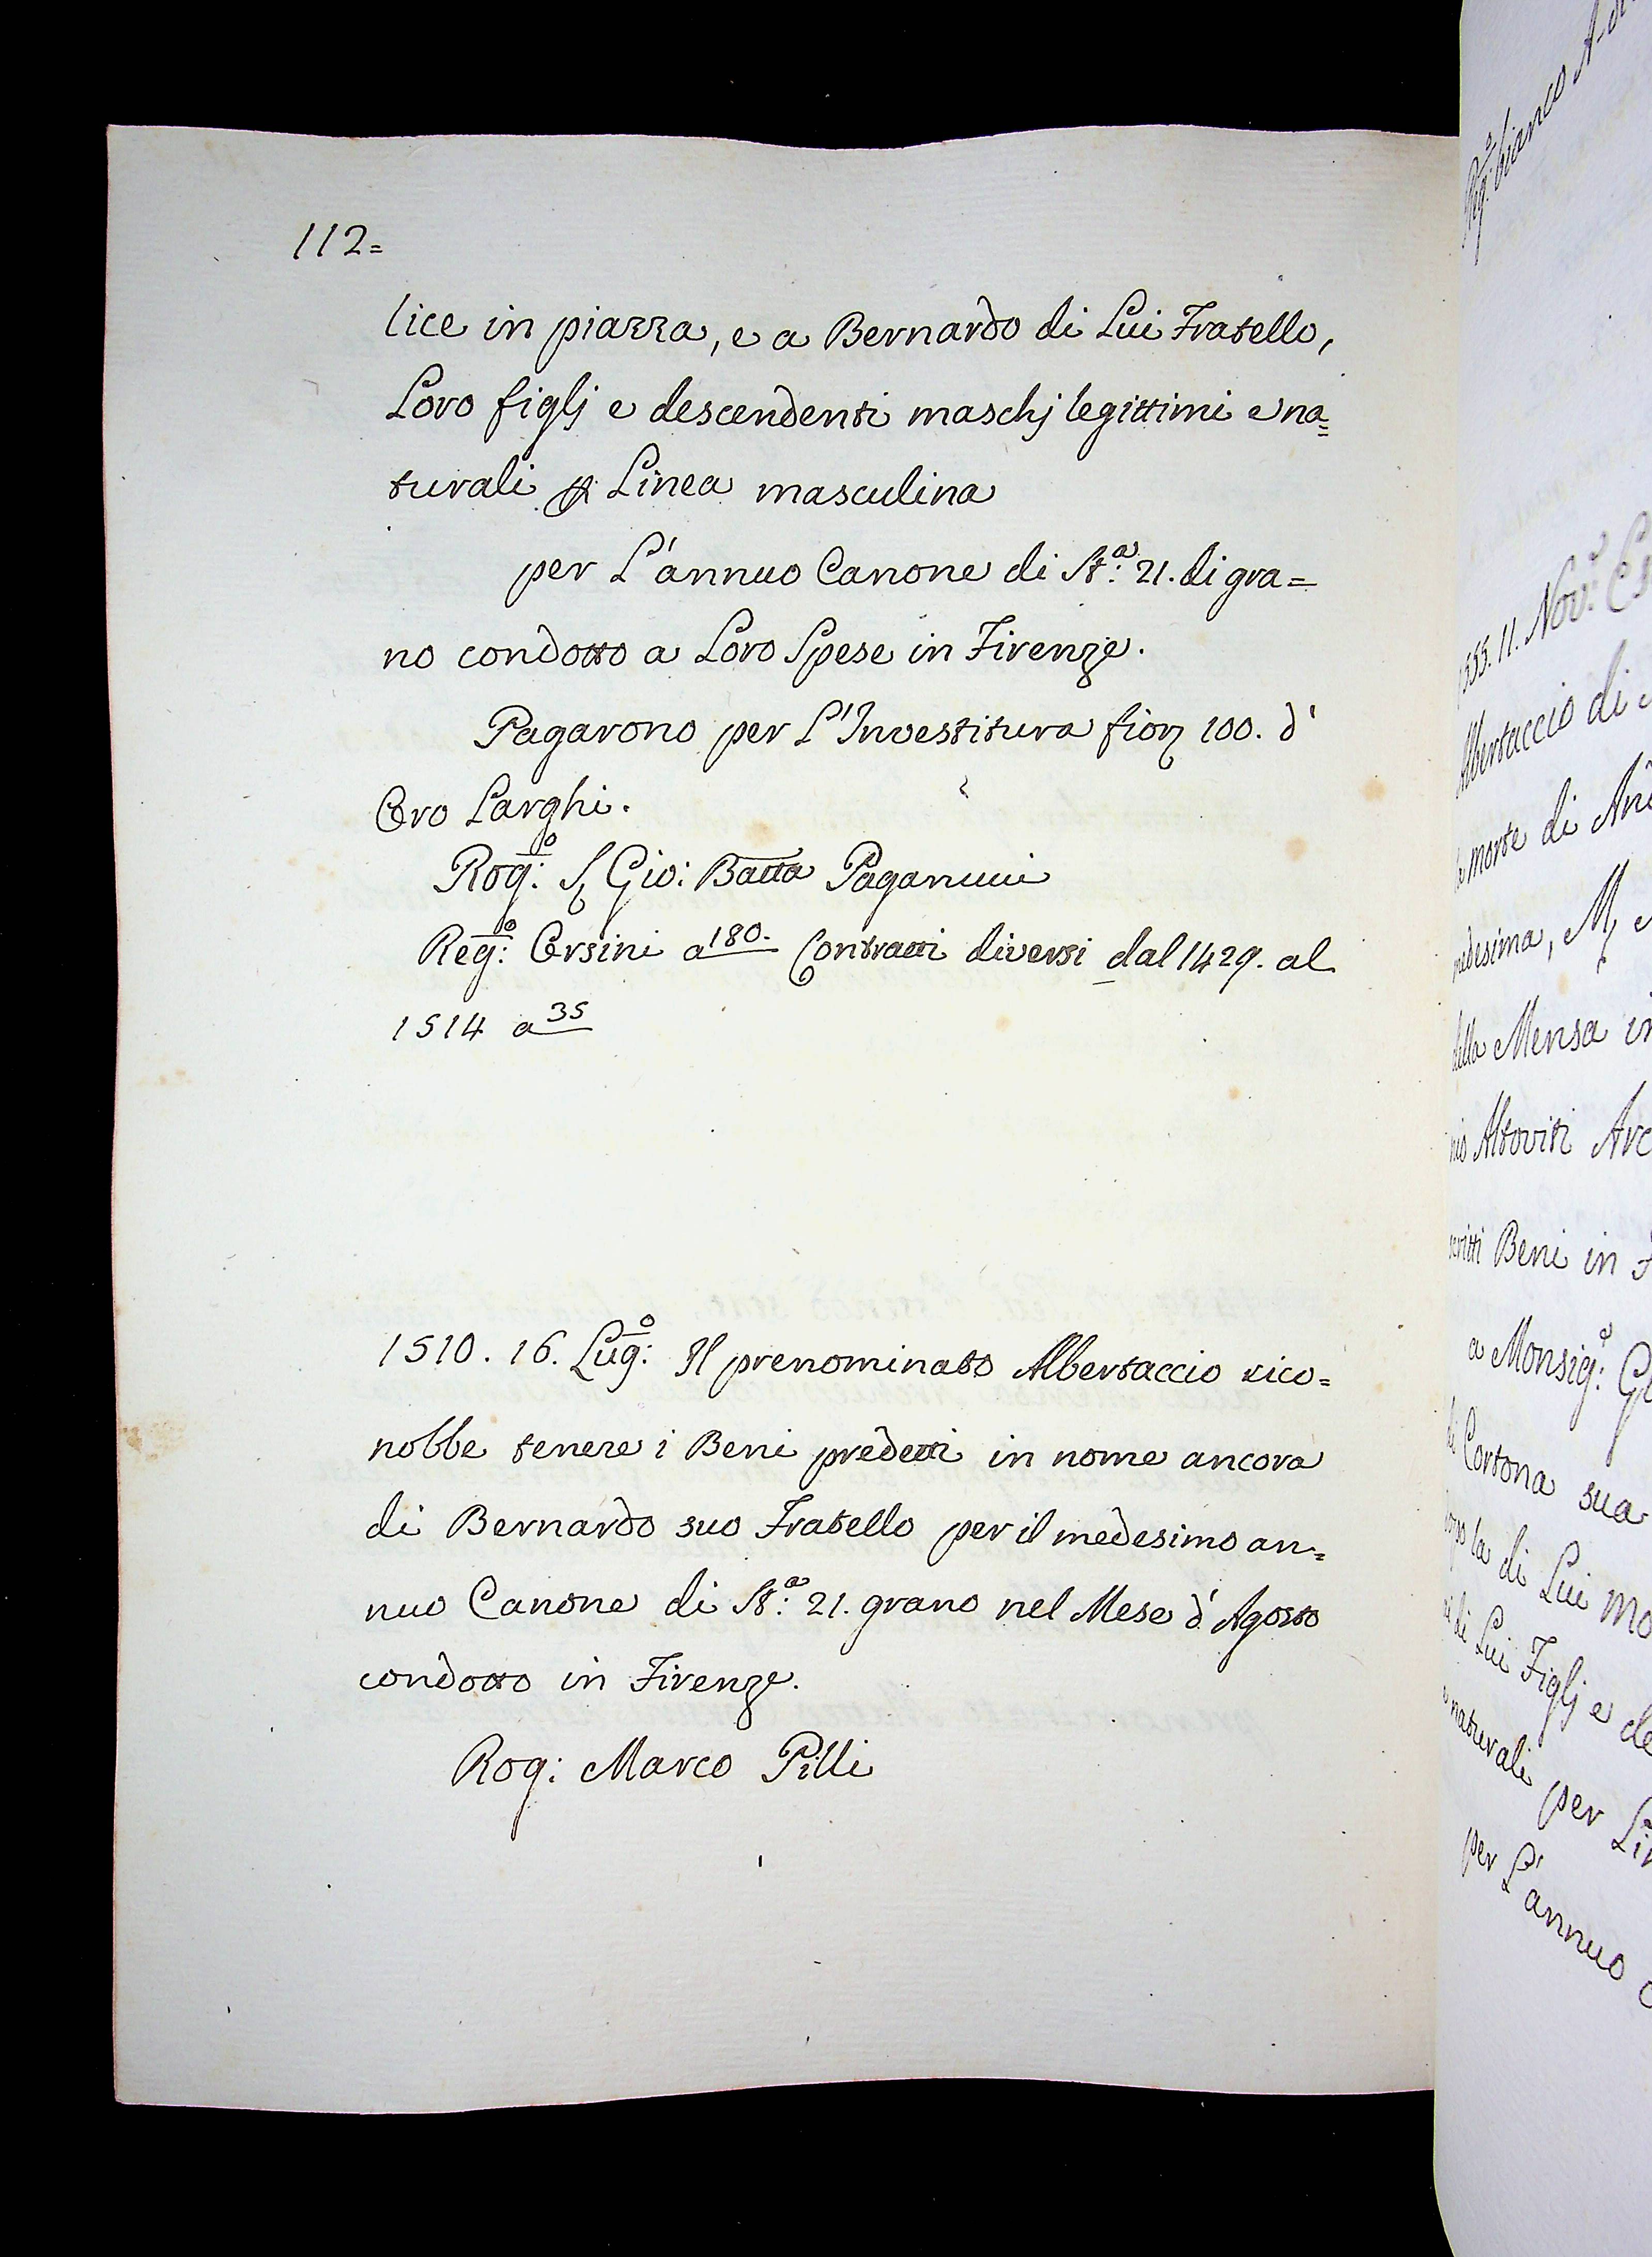 112=
lice in piazza, e a Bernardo di Lui Fratello,
Loro figlj e descendenti maschj legittimi e na=
turali p Linea masculina
per L'annuo Canone di St.ª 21. di gra=
no condotto a Loro Spese in Firenze.
Pagarono per L'Investitura fior 100. d'
Oro Larghi.
Rog:º S Gio: Batta Paganucci
Reg:º Orsini a 180. Contratti diversi dal 1429. al
1514 a 35
1510. 16. Lug:º Il prenominato Albertaccio rico=
nobbe tenere i Beni predetti in nome ancora
di Bernardo suo Fratello per il medesimo an=
nuo Canone di St:ª 21. grano nel Mese d'Agosto
condotto in Firenze.
Rog: Marco Pilli
11. Nov:e
Albertaccio di
morte di
della Mensa in
Altoviti Arc
Beni in
a Monsig:e
Cortona sua
la di Lui mo
di Lui Figlj e de
naturali per Lin
per L'annuo